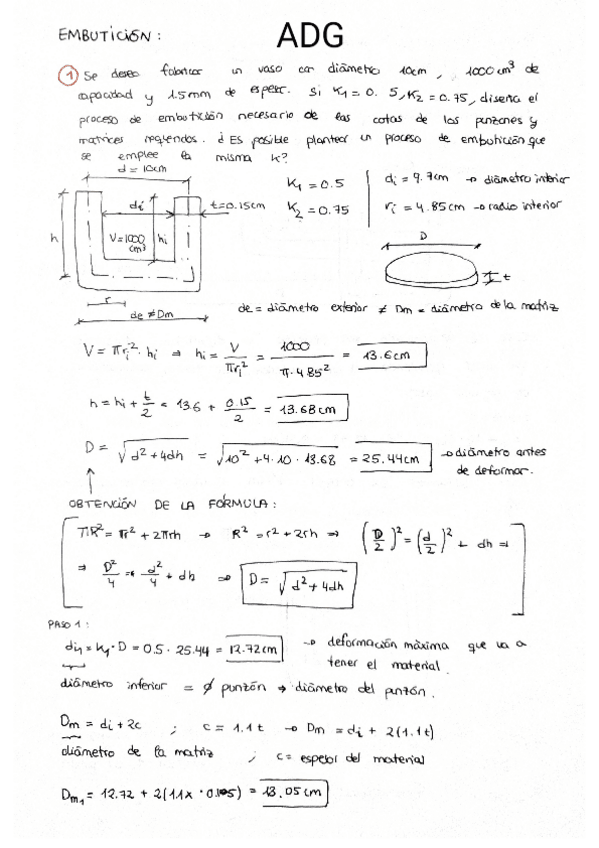 EMBUTICIÓN :
ADG
1 Se desea fabricar un vaso con diámetro 10cm, 1000 cm³ de
capacidad y 1.5mm de espesor. Si K₁ = 0.5, K₂ = 0.75, diseña el
proceso de embutición necesario de las cotas de los punzones y
matrices requeridos. ¿Es posible plantear un proceso de embutición que
se emplee la misma K?
d = 10cm
K₁ = 0.5
di = 9.7cm → diámetro interior
di
t=0.15cm
K₂ = 0.75
ri = 4.85cm → radio interior
h
V=1000 cm³
hi
D
t
r
de ≠ Dm
de = diámetro exterior ≠ Dm = diámetro de la matriz
V = πri²·hi ⇒ hi = V/πri² = 1000/π·4.85² = 13.6cm
h = hi + t/2 = 13.6 + 0.15/2 = 13.68cm
D = √d²+4dh = √10²+4·10·13.68 = 25.44cm → diámetro antes
de deformar.
OBTENCIÓN DE LA FÓRMULA :
πR² = πr² + 2πrh → R² = r² + 2rh ⇒ (D/2)² = (d/2)² + dh ⇒
⇒ D²/4 = d²/4 + dh ⇒ D = √d² + 4dh
PASO 1 :
di₁ = K₁·D = 0.5 · 25.44 = 12.72cm → deformación máxima que va a
tener el material.
diámetro inferior = ø punzón → diámetro del punzón.
Dm = di + 2c ; c = 1.1t → Dm = di + 2(1.1t)
diámetro de la matriz ; c = espesor del material
Dm₁ = 12.72 + 2(1.1x · 0.15) = 13.05cm